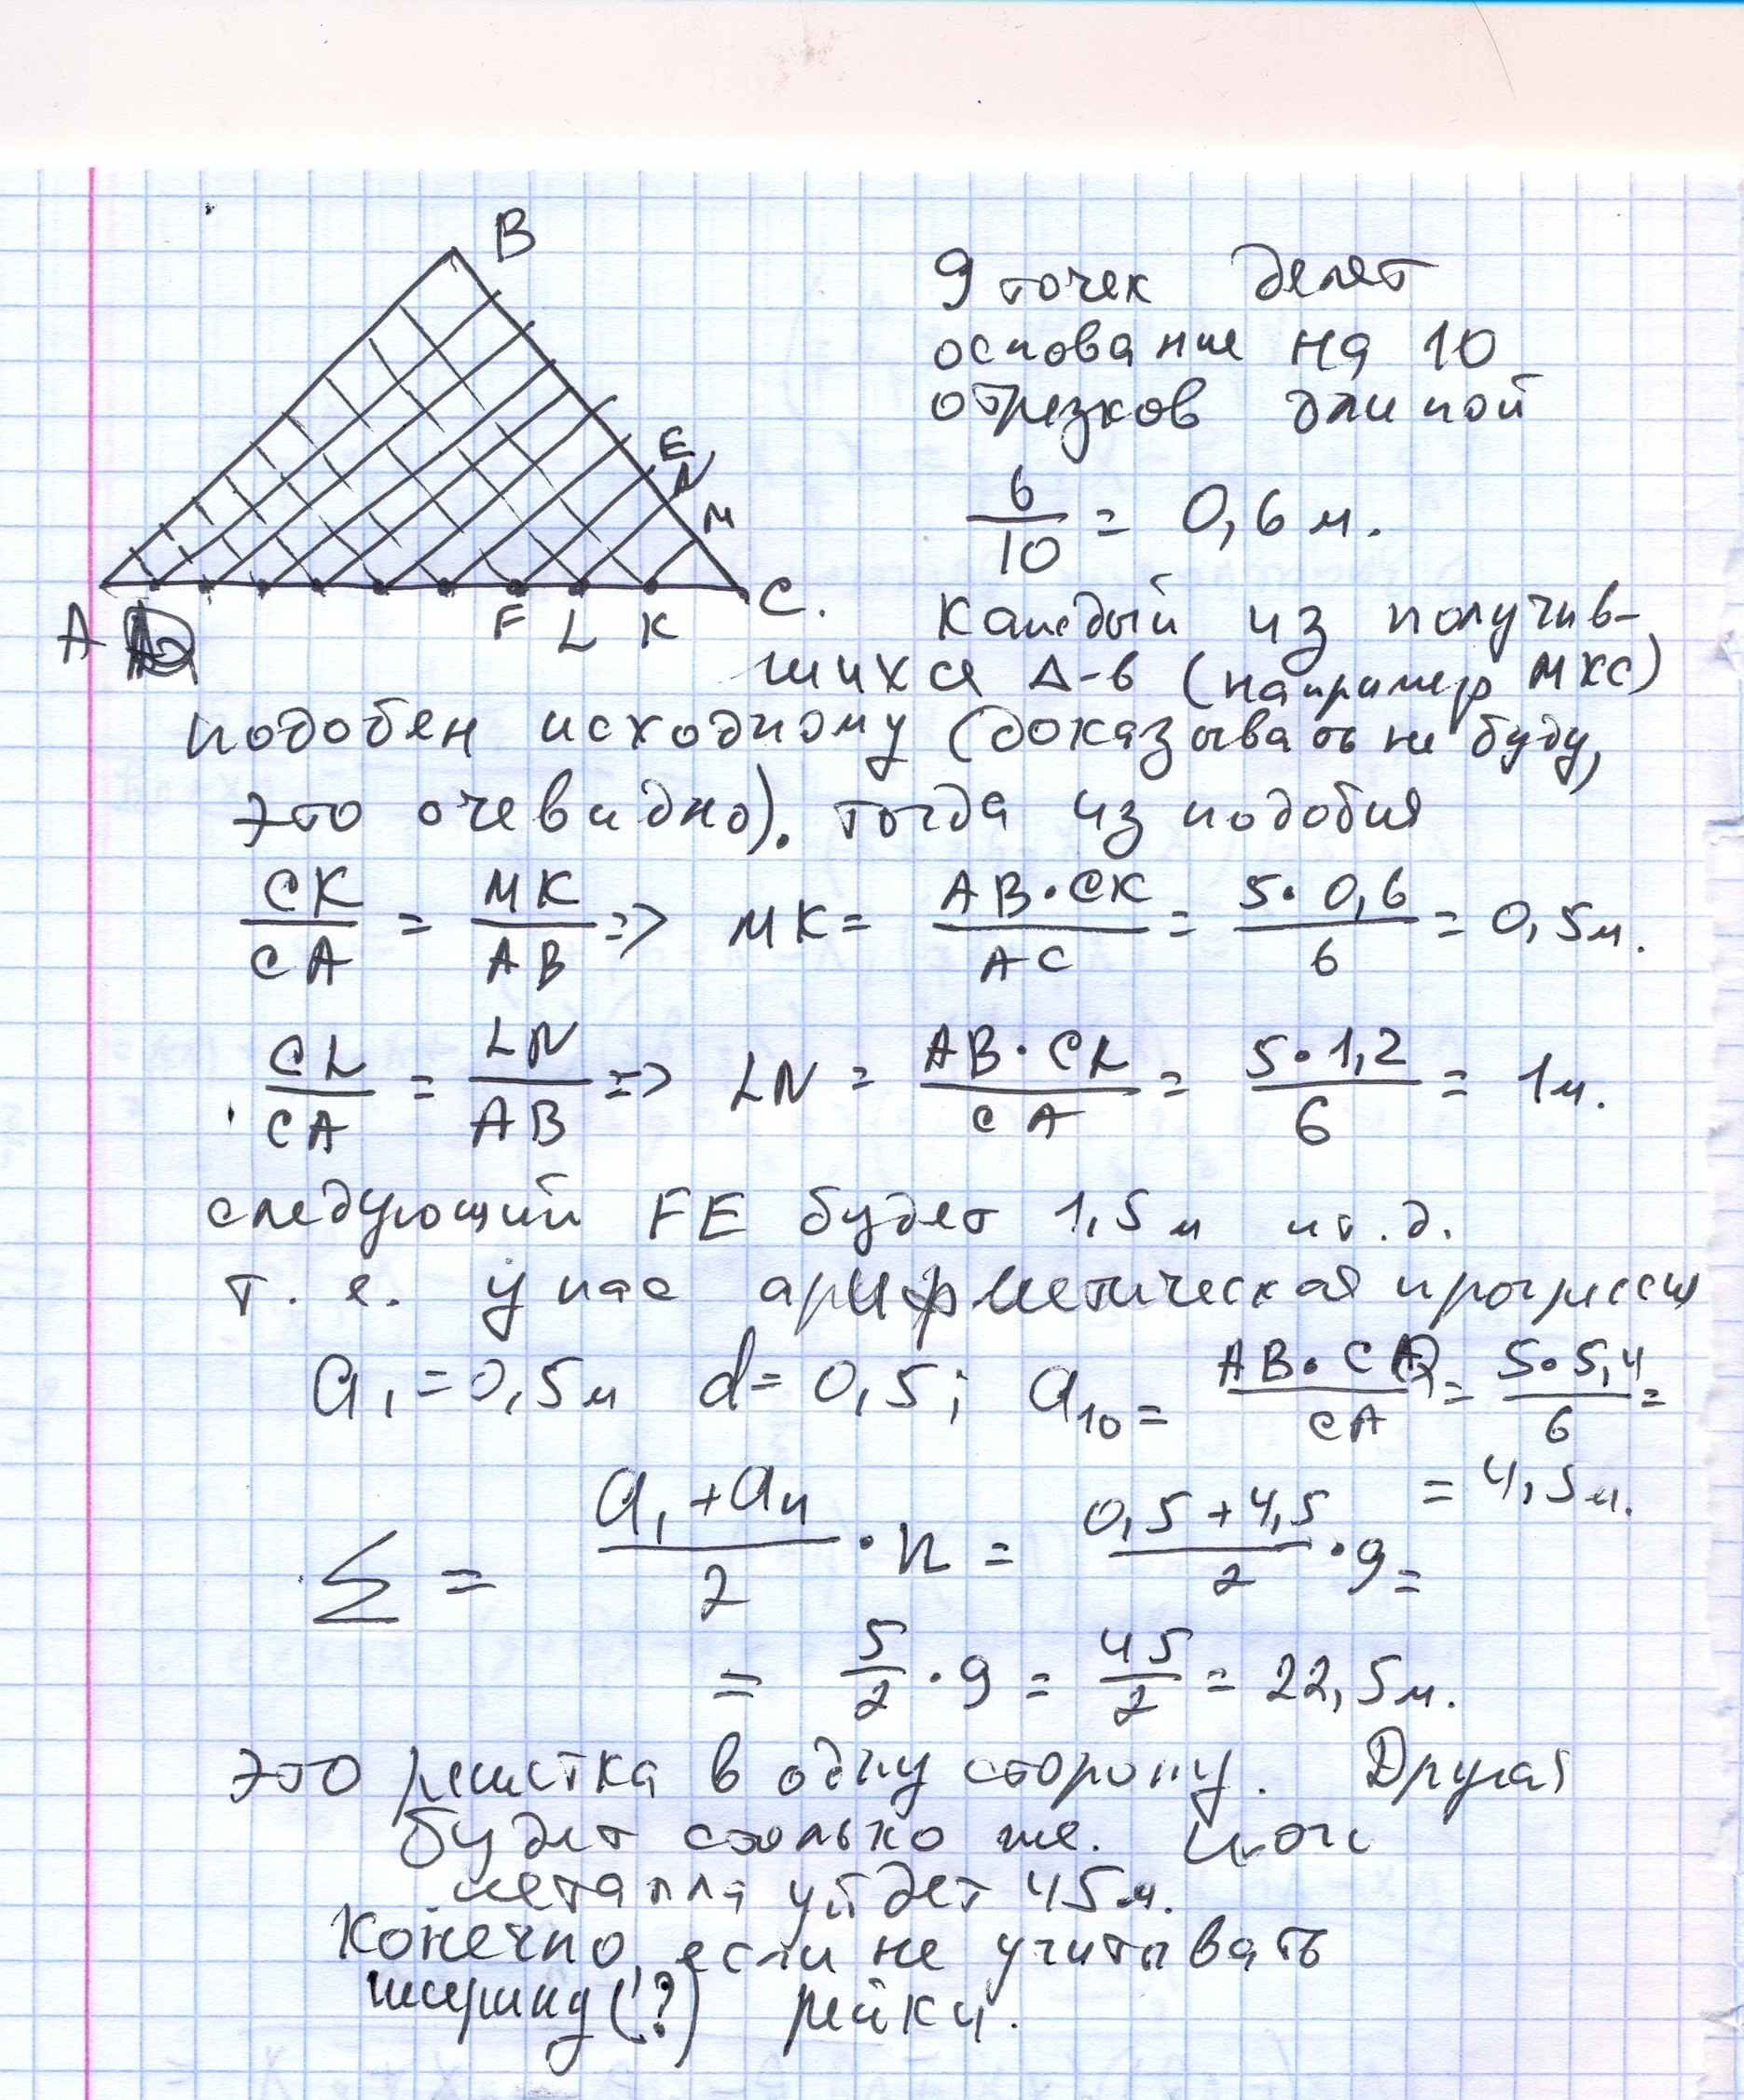 B
9 точек делят
основание на 10
отрезков длиной
E
N
6/10 = 0,6 м.
M
A
F L K
C.
Каждый из получив-
шихся Δ-в (например МКС)
подобен исходному (доказывать не буду,
это очевидно). Тогда из подобия
CK/CA = MK/AB => MK = AB·CK/AC = 5·0,6/6 = 0,5м.
CL/CA = LN/AB => LN = AB·CL/CA = 5·1,2/6 = 1м.
следующий FE будет 1,5м и т.д.
т. е. у нас арифметическая прогрессия
a₁=0,5м d=0,5; a₁₀= AB·CQ/CA = 5·5,4/6 =
= 4,5м.
Σ = (a₁+aₙ)/2 · n = (0,5+4,5)/2 · 9 =
= 5/2 · 9 = 45/2 = 22,5м.
это решетка в одну сторону. Другая
будет столько же. Итого
металла уйдет 45м.
Конечно, если не учитывать
ширину(?) рейки.